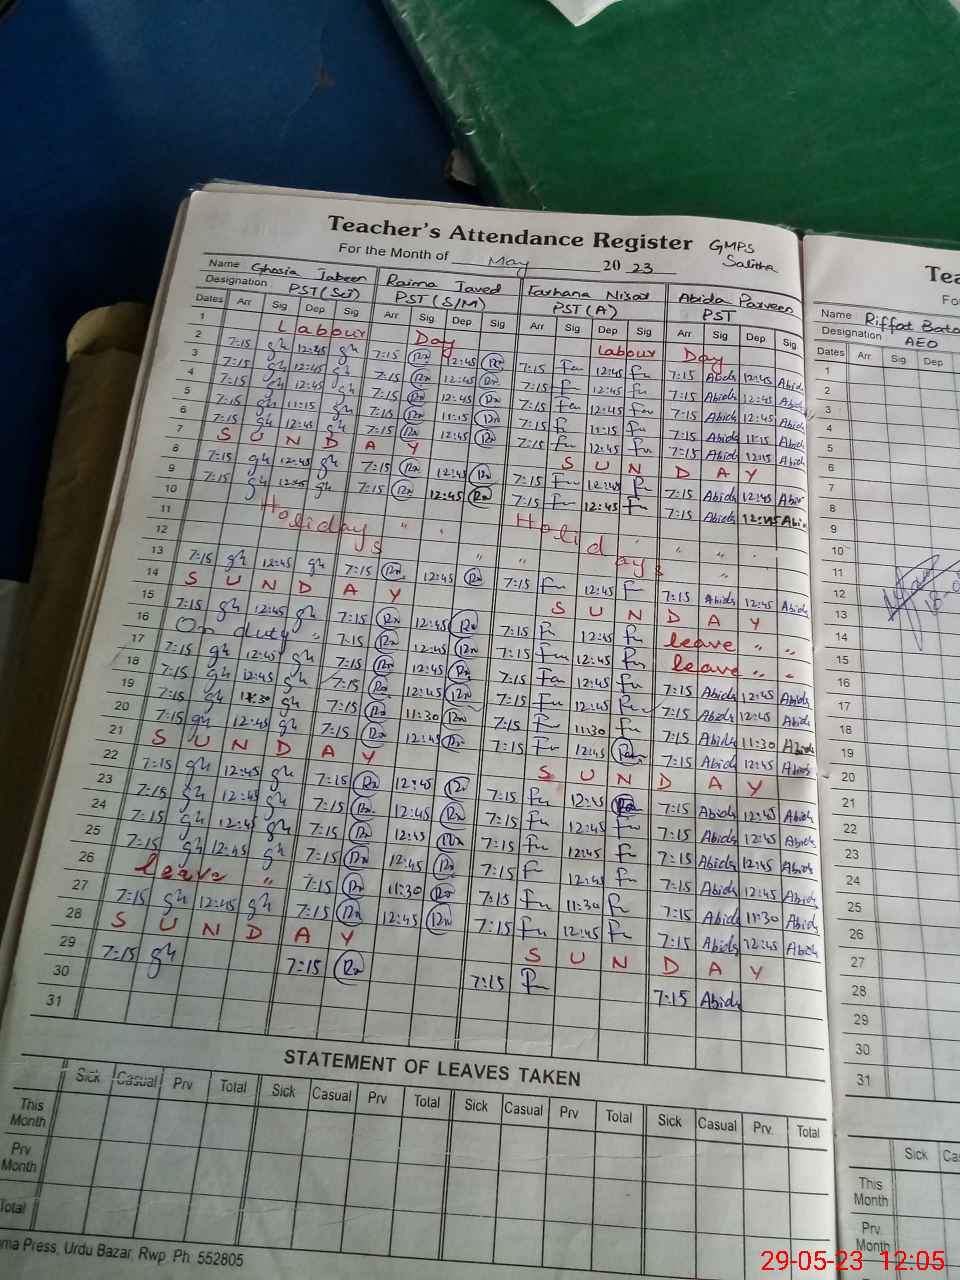 Teacher's Attendance Register GMPS
For the Month of May 20 23 Salitha
Name Ghosia Jabeen Raima Javed Farhana Nisar Abida Parveen
Designation PST(Sci) PST(S/M) PST(A) PST
Dates Arr Sig Dep Sig Arr Sig Dep Sig Arr Sig Dep Sig Arr Sig Dep Sig
1 Labour Day Labour Day
2 7:15 gh 12:45 gh 7:15 Ra 12:45 Ra 7:15 Fn 12:45 Fn 7:15 Abida 12:45 Abida
3 7:15 gh 12:45 gh 7:15 Ra 12:45 Ra 7:15 Fn 12:45 Fn 7:15 Abida 12:45 Abida
4 7:15 gh 12:45 gh 7:15 Ra 12:45 Ra 7:15 Fn 12:45 Fn 7:15 Abida 12:45 Abida
5 7:15 gh 11:15 gh 7:15 Ra 11:15 Ra 7:15 Fn 11:15 Fn 7:15 Abida 11:15 Abida
6 7:15 gh 12:45 gh 7:15 Ra 12:45 Ra 7:15 Fn 12:45 Fn 7:15 Abida 12:15 Abida
7 S U N D A Y S U N D A Y
8 7:15 gh 12:45 gh 7:15 Ra 12:45 Ra 7:15 Fn 12:45 Fn 7:15 Abida 12:45 Abida
9 7:15 gh 12:45 gh 7:15 Ra 12:45 Ra 7:15 Fn 12:45 Fn 7:15 Abida 12:45 Abida
10
11 Holidays " Holidays " "
12 " " "
13 7:15 gh 12:45 gh 7:15 Ra 12:45 Ra 7:15 Fn 12:45 Fn 7:15 Abida 12:45 Abida
14 S U N D A Y S U N D A Y
15 7:15 gh 12:45 gh 7:15 Ra 12:45 Ra 7:15 Fn 12:45 Fn leave " "
16 On duty " 7:15 Ra 12:45 Ra 7:15 Fn 12:45 Fn leave " "
17 7:15 gh 12:45 gh 7:15 Ra 12:45 Ra 7:15 Fn 12:45 Fn 7:15 Abida 12:45 Abida
18 7:15 gh 12:45 gh 7:15 Ra 12:45 Ra 7:15 Fn 12:45 Fn 7:15 Abida 12:45 Abida
19 7:15 gh 11:30 gh 7:15 Ra 11:30 Ra 7:15 Fn 11:30 Fn 7:15 Abida 11:30 Abida
20 7:15 gh 12:45 gh 7:15 Ra 12:45 Ra 7:15 Fn 12:45 7:15 Abida 12:45 Abida
21 S U N D A Y S U N D A Y
22 7:15 gh 12:45 gh 7:15 Ra 12:45 Ra 7:15 Fn 12:45 Ra 7:15 Abida 12:45 Abida
23 7:15 gh 12:45 gh 7:15 Ra 12:45 Ra 7:15 Fn 12:45 Fn 7:15 Abida 12:45 Abida
24 7:15 gh 12:45 gh 7:15 Ra 12:45 Ra 7:15 Fn 12:45 Fn 7:15 Abida 12:45 Abida
25 7:15 gh 12:45 gh 7:15 Ra 12:45 Ra 7:15 Fn 12:45 Fn 7:15 Abida 12:45 Abida
26 leave " 7:15 Ra 11:30 Ra 7:15 Fn 11:30 Fn 7:15 Abida 11:30 Abida
27 7:15 gh 12:45 gh 7:15 Ra 12:45 Ra 7:15 Fn 12:45 Fn 7:15 Abida 12:45 Abida
28 S U N D A Y S U N D A Y
29 7:15 gh 7:15 Ra 7:15 Fn 7:15 Abida
30
31
STATEMENT OF LEAVES TAKEN
Sick Casual Prv Total Sick Casual Prv Total Sick Casual Prv Total Sick Casual Prv. Total
This Month
Prv Month
Total
Press, Urdu Bazar, Rwp. Ph: 552805
Name Riffat
Designation AEO
Dates Arr Sig Dep
1
2
3
4
5
6
7
8
9
10
11
12
13
14
15
16
17
18
19
20
21
22
23
24
25
26
27
28
29
30
31
Sick
This Month
Prv. Month
29-05-23 12:05